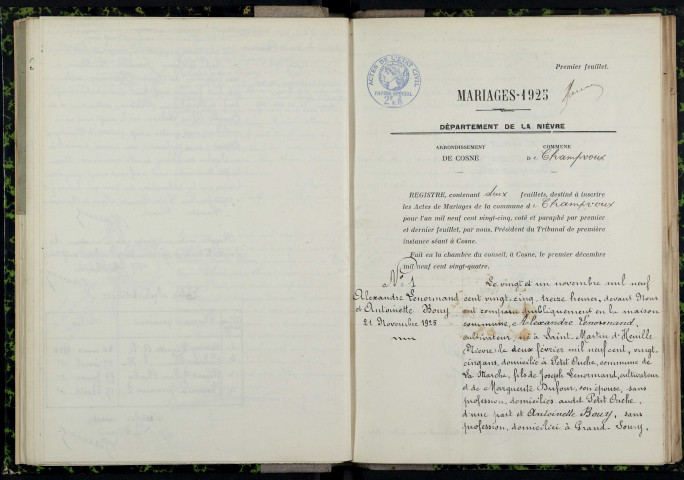 Premier feuillet.
ACTES DE L'ETAT CIVIL
MARIAGES-1925
DÉPARTEMENT DE LA NIÈVRE
ARRONDISSEMENT
DE COSNE
COMMUNE
de Champvoux
REGISTRE, contenant deux feuillets, destiné à inscrire
les Actes de Mariages de la commune de Champvoux
pour l'an mil neuf cent vingt-cinq, coté et paraphé par premier
et dernier feuillet, par nous, Président du Tribunal de première
instance séant à Cosne.
Fait en la chambre du conseil, à Cosne, le premier décembre
mil neuf cent vingt-quatre.
No 1
Alexandre Lenormand
et Antoinette Bouy
21 Novembre 1925
Le vingt et un novembre mil neuf
cent vingt-cinq, treize heures, devant Nous
ont comparu publiquement en la maison
commune, Alexandre Lenormand,
cultivateur, né à Saint-Martin-d'Heuille
Nièvre le deux février mil neuf cent, vingt-
cinq ans, domicilié à Petit Ouche, commune de
La Marche, fils de Joseph Lenormand, cultivateur
et de Marguerite Dufour, son épouse, sans
profession, domiciliés audit Petit Ouche,
d'une part et Antoinette Bouy, sans
profession, domiciliée à Grand-Soury,